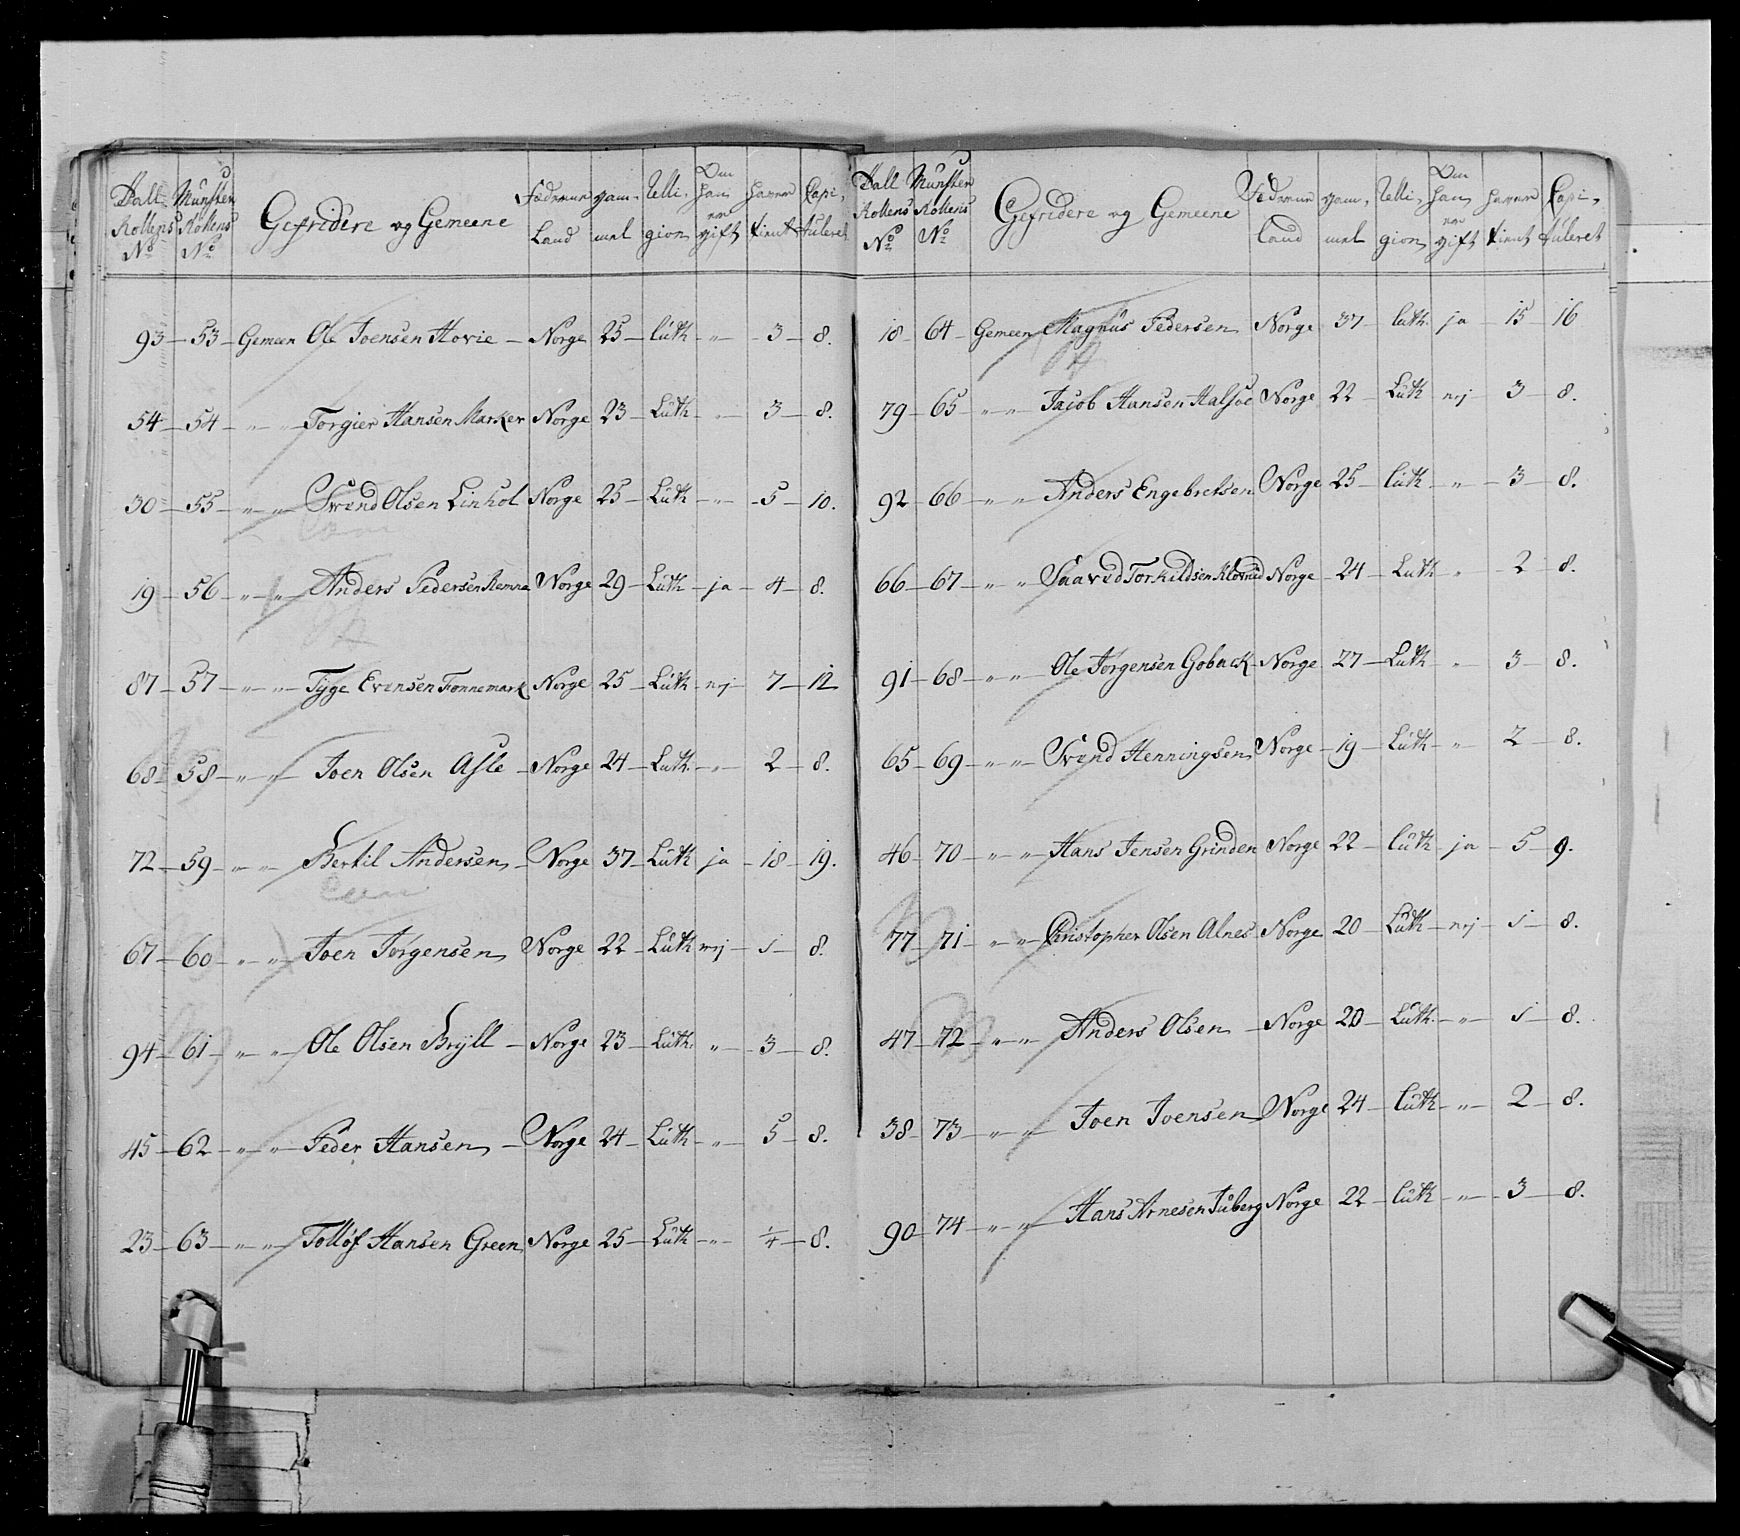 Rollens No Munster Rollens No Gefridere og Gemeene Land gam- mel Relli- gion Om han er gift haver tient Capi- tuleret
93 53 Gemeen Ole Joensen Hovie Norge 25 luth " 3 8.
54 54 " " Torgier Hansen Marker Norge 23 Luth " 3 8.
30 55 " " Svend Olsen Linhol Norge 25 Luth " 5 10.
19 56 " " Anders Pedersen Remna Norge 29 Luth ja 4 8.
87 57 " " Tyge Evensen Tonnemark Norge 25 Luth nej 7 12
68 58 " " Joen Olsen Asle Norge 24 Luth " 2 8.
72 59 " " Bertil Andersen Norge 37 Luth ja 18 19.
67 60 " " Joen Jørgensen Norge 22 Luth nej 1 8.
94 61 " " Ole Olsen Brÿll Norge 23 Luth. " 3 8.
45 62 " " Peder Hansen Norge 24 Luth " 5 8.
23 63 " " Tolløf Hansen Green Norge 25 Luth " 1/4 8.
Rollens No Munster Rollens No Gefridere og Gemeene land gam- mel Relli- gion Om han er gift haver tient Capi- tuleret
18 64 Gemeen Magnus Pedersen Norge 37 luth. ja 15 16
79 65 " " Jacob Hansen Halsoe Norge 22 Luth nej 3 8.
92 66 " " Anders Engebretsen Norge 25 luth " 3 8.
66 67 " " Saavid Torkildsen Norge 24 Luth " 2 8.
91 68 " " Ole Jørgensen Goback Norge 27 Luth " 3 8.
65 69 " " Svend Henningsen Norge 19 Luth " 2 8.
46 70 " " Hans Jensen Grinden Norge 22 luth ja 5 9.
77 71 " " Christopher Olsen Alnes Norge 20 Luth nej 1 8.
47 72 " " Anders Olsen Norge 20 Luth. " 1 8.
38 73 " " Joen Joensen Norge 24 luth " 2 8.
90 74 " " Hans Arnesen Juberg Norge 22 luth " 3 8.